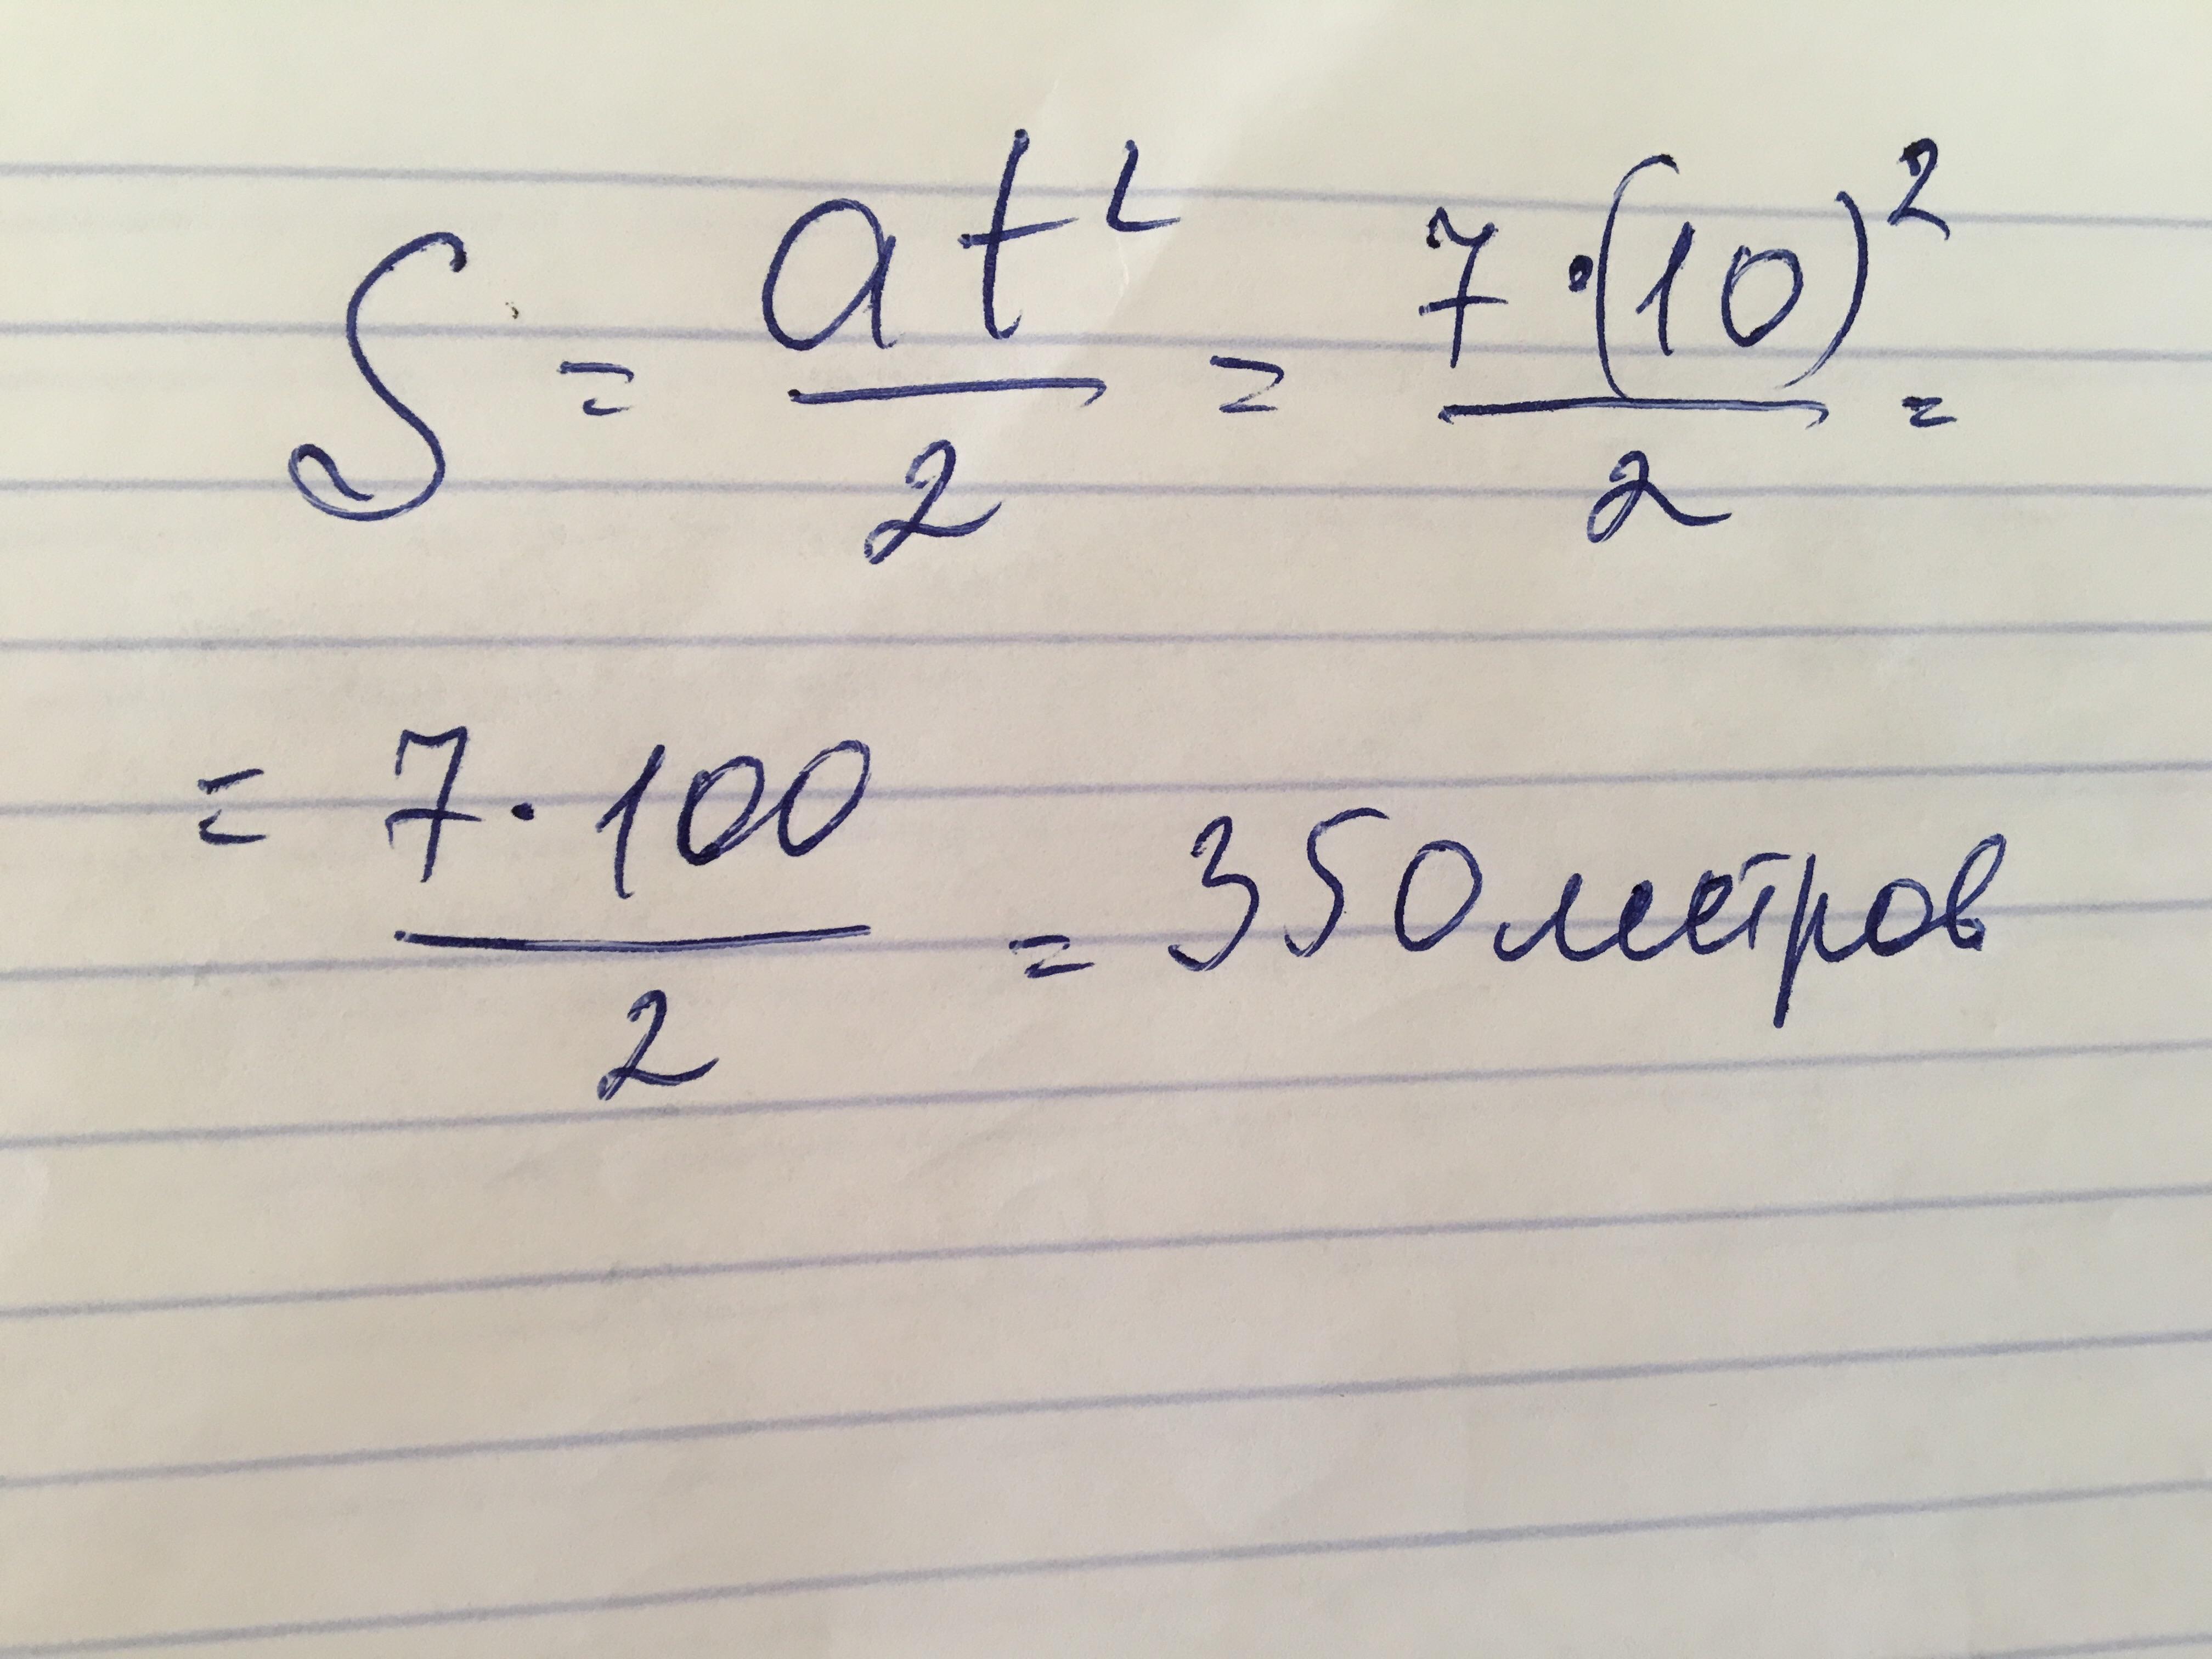 S = at²/2 = 7·(10)²/2 =
= 7·100/2 = 350 метров